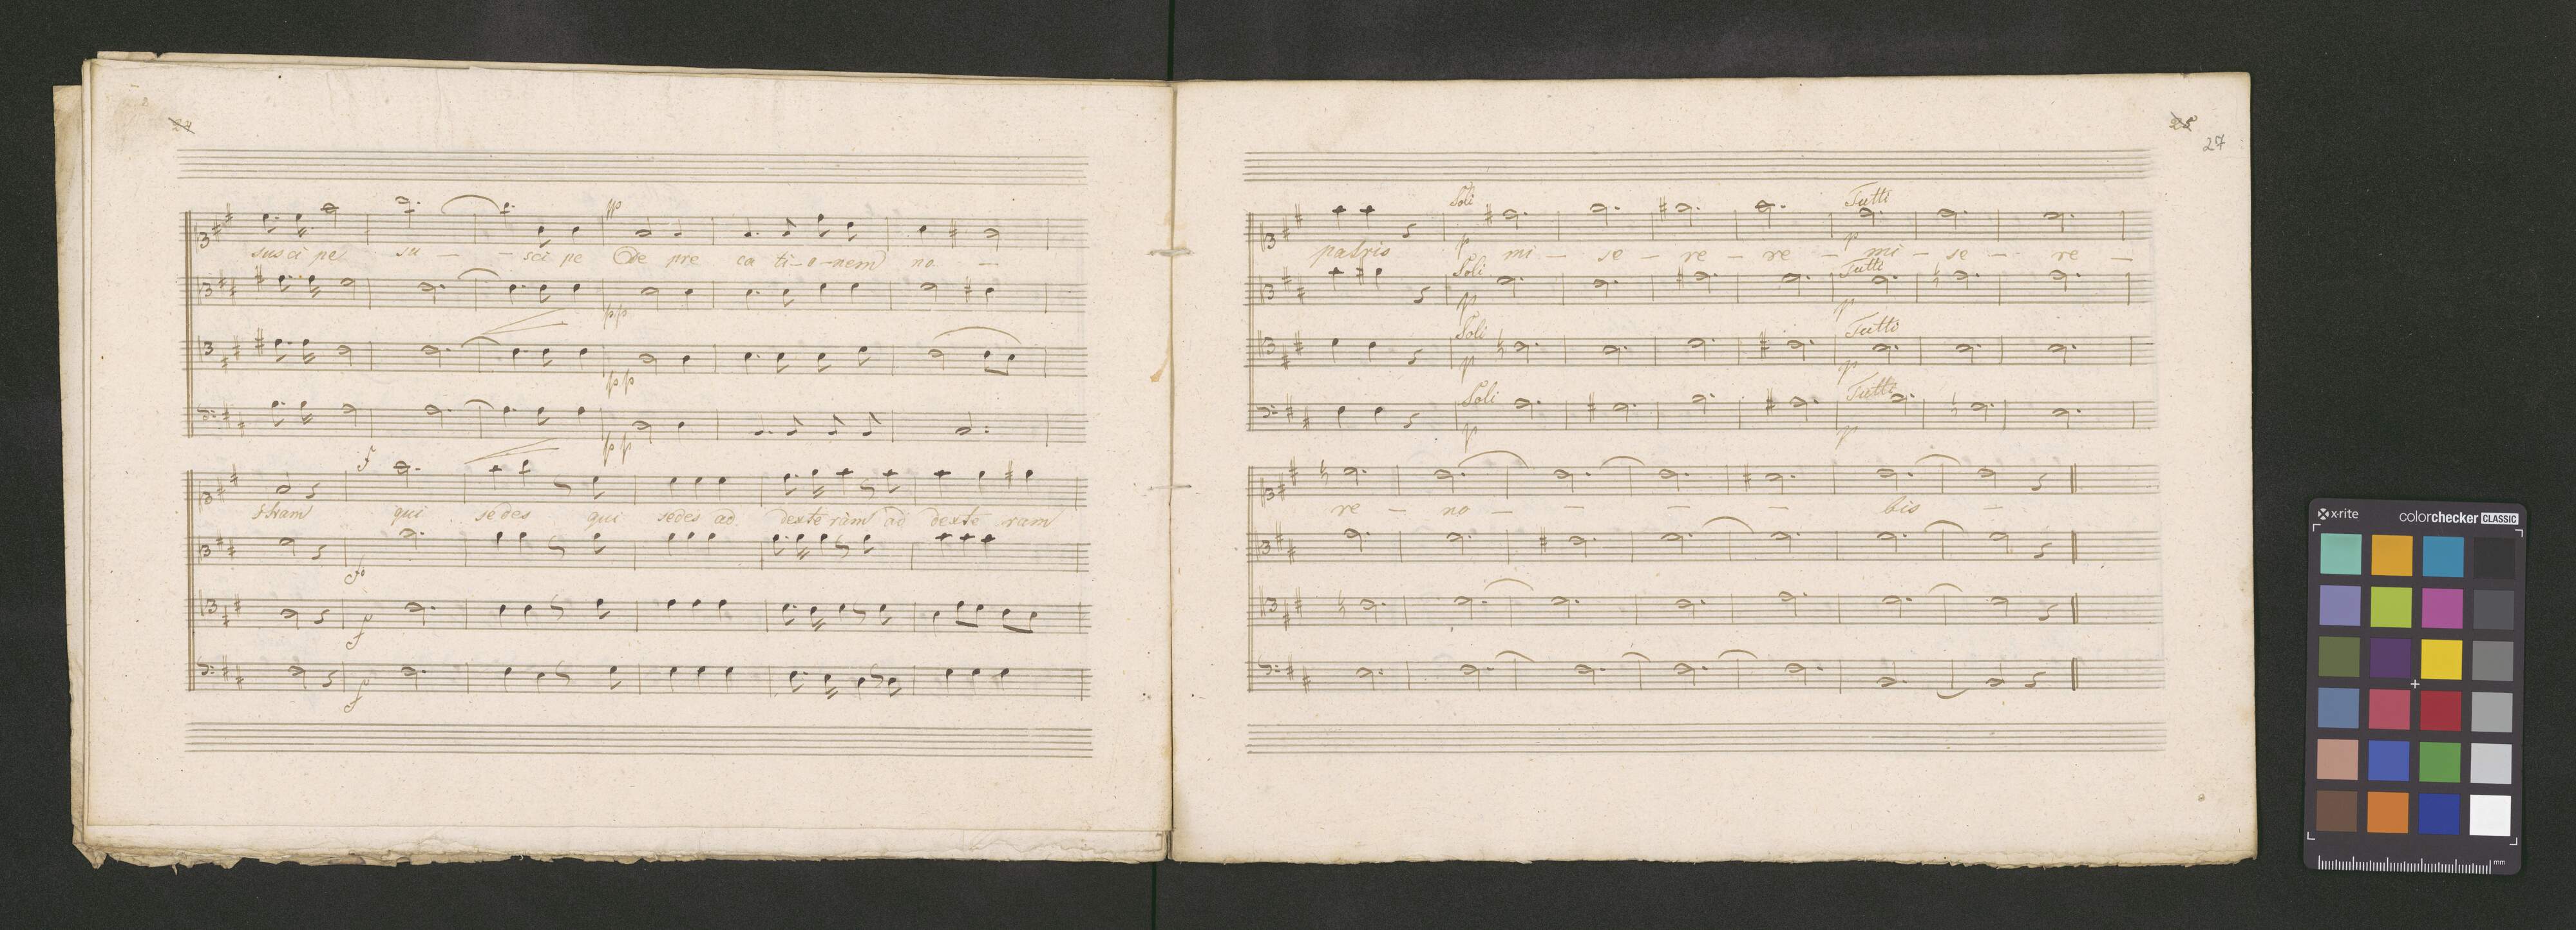 24
pp
sus ci pe su — — sci pe De pre ca ti-o-nem no. —
pp
pp
pp
f
stram qui sedes qui sedes ad dexte ram ad dexte ram
fo
f
f
25
27
Soli Tutti
p p
patris mi — se — re — re — mi — se — re —
Soli Tutti
p p
Soli Tutti
p p
Soli Tutti
p p
re — no — — — — bis —
x-rite colorchecker CLASSIC
mm